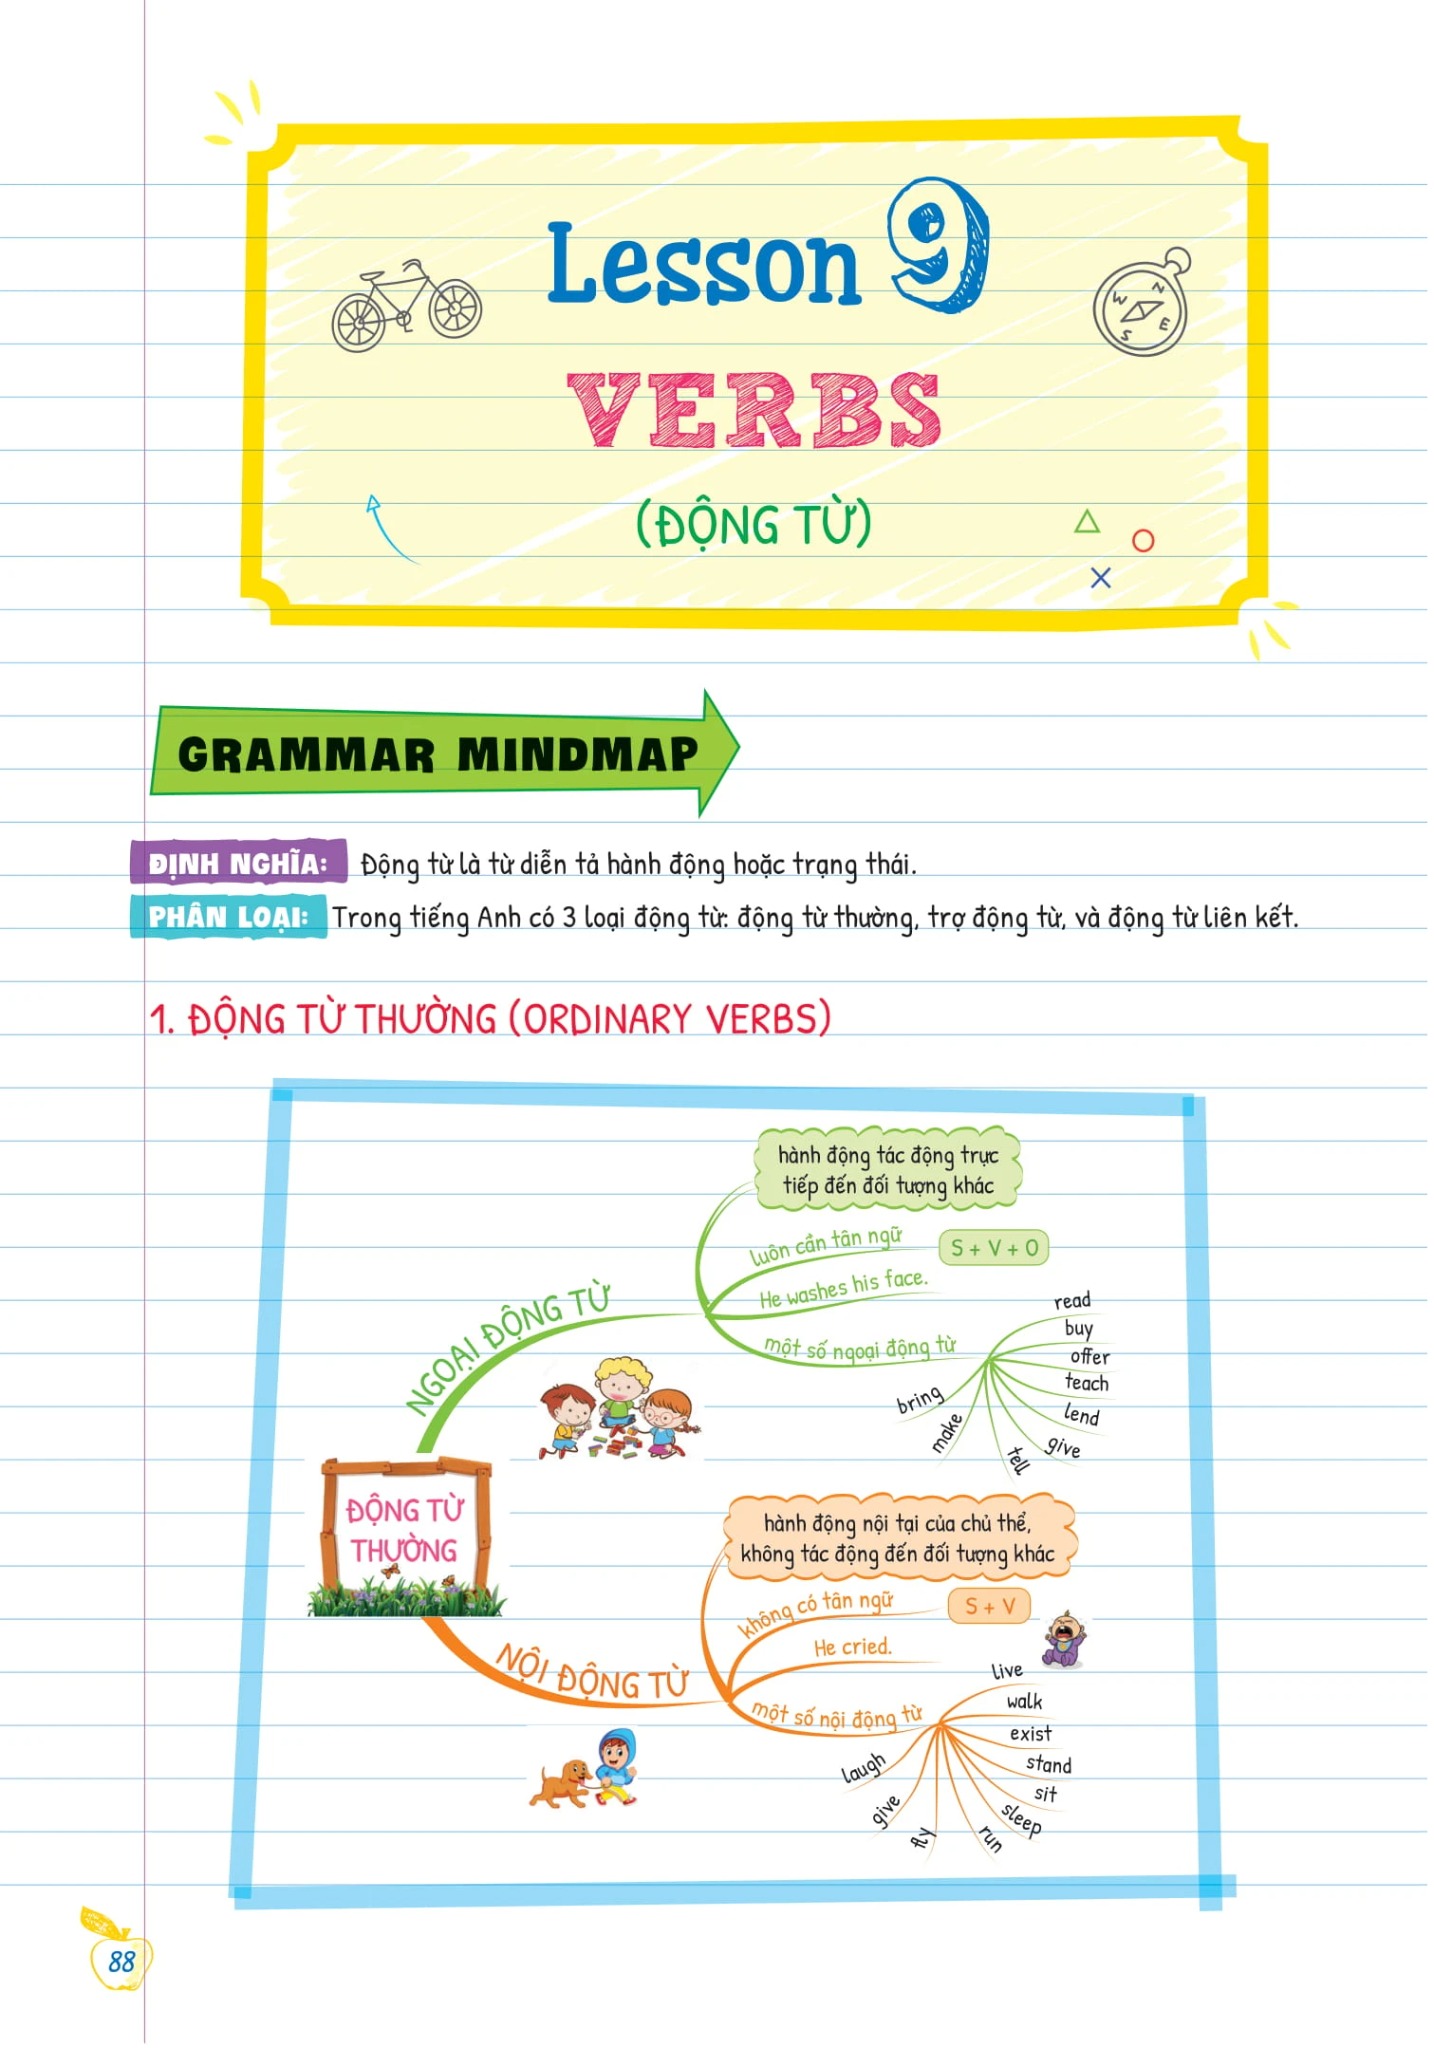 Lesson 9
VERBS
(ĐỘNG TỪ)
GRAMMAR MINDMAP
ĐỊNH NGHĨA: Động từ là từ diễn tả hành động hoặc trạng thái.
PHÂN LOẠI: Trong tiếng Anh có 3 loại động từ: động từ thường, trợ động từ, và động từ liên kết.
1. ĐỘNG TỪ THƯỜNG (ORDINARY VERBS)
ĐỘNG TỪ
THƯỜNG
NGOẠI ĐỘNG TỪ
hành động tác động trực
tiếp đến đối tượng khác
luôn cần tân ngữ
S + V + O
He washes his face.
một số ngoại động từ
read
buy
offer
teach
lend
give
tell
make
bring
NỘI ĐỘNG TỪ
hành động nội tại của chủ thể,
không tác động đến đối tượng khác
không có tân ngữ
S + V
He cried.
một số nội động từ
live
walk
exist
stand
sit
sleep
run
fly
give
laugh
N
E
S
W
88